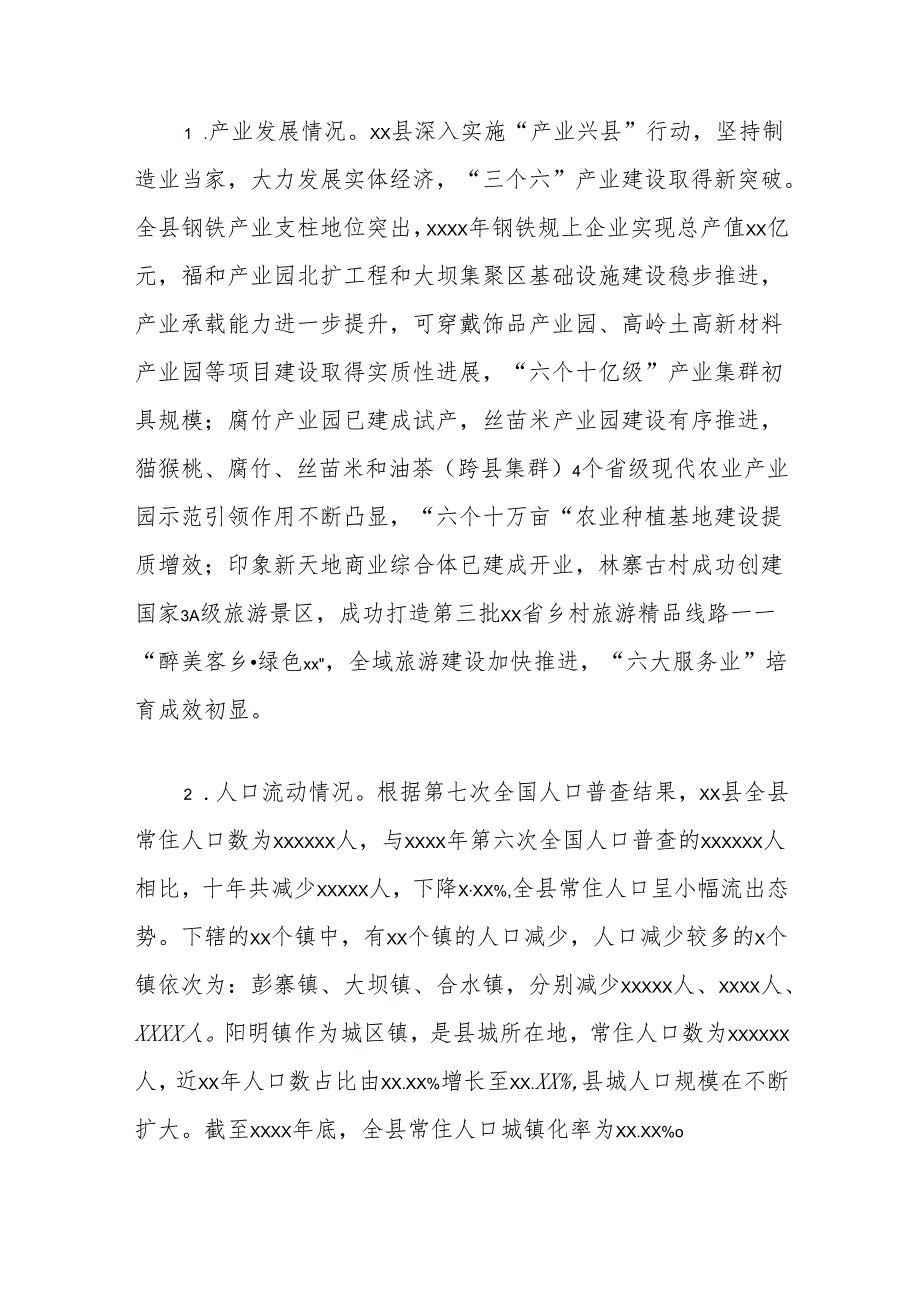 1 .产业发展情况。xx县深入实施“产业兴县”行动，坚持制
造业当家，大力发展实体经济，“三个六”产业建设取得新突破。
全县钢铁产业支柱地位突出，xxxx年钢铁规上企业实现总产值xx亿
元，福和产业园北扩工程和大坝集聚区基础设施建设稳步推进，
产业承载能力进一步提升，可穿戴饰品产业园、高岭土高新材料
产业园等项目建设取得实质性进展，“六个十亿级”产业集群初
具规模；腐竹产业园已建成试产，丝苗米产业园建设有序推进，
猫猴桃、腐竹、丝苗米和油茶（跨县集群）4个省级现代农业产业
园示范引领作用不断凸显，“六个十万亩“农业种植基地建设提
质增效；印象新天地商业综合体已建成开业，林寨古村成功创建
国家3A级旅游景区，成功打造第三批xx省乡村旅游精品线路一一
“醉美客乡•绿色xx"，全域旅游建设加快推进，“六大服务业”培
育成效初显。
2 .人口流动情况。根据第七次全国人口普查结果，xx县全县
常住人口数为xxxxxx人，与xxxx年第六次全国人口普查的xxxxxx人
相比，十年共减少xxxxx人，下降x·xx%,全县常住人口呈小幅流出态
势。下辖的xx个镇中，有xx个镇的人口减少，人口减少较多的x个
镇依次为：彭寨镇、大坝镇、合水镇，分别减少xxxxx人、xxxx人、
XXXX人。阳明镇作为城区镇，是县城所在地，常住人口数为xxxxxx
人，近xx年人口数占比由xx.xx%增长至xx.XX%,县城人口规模在不断
扩大。截至xxxx年底，全县常住人口城镇化率为xx.xx%o